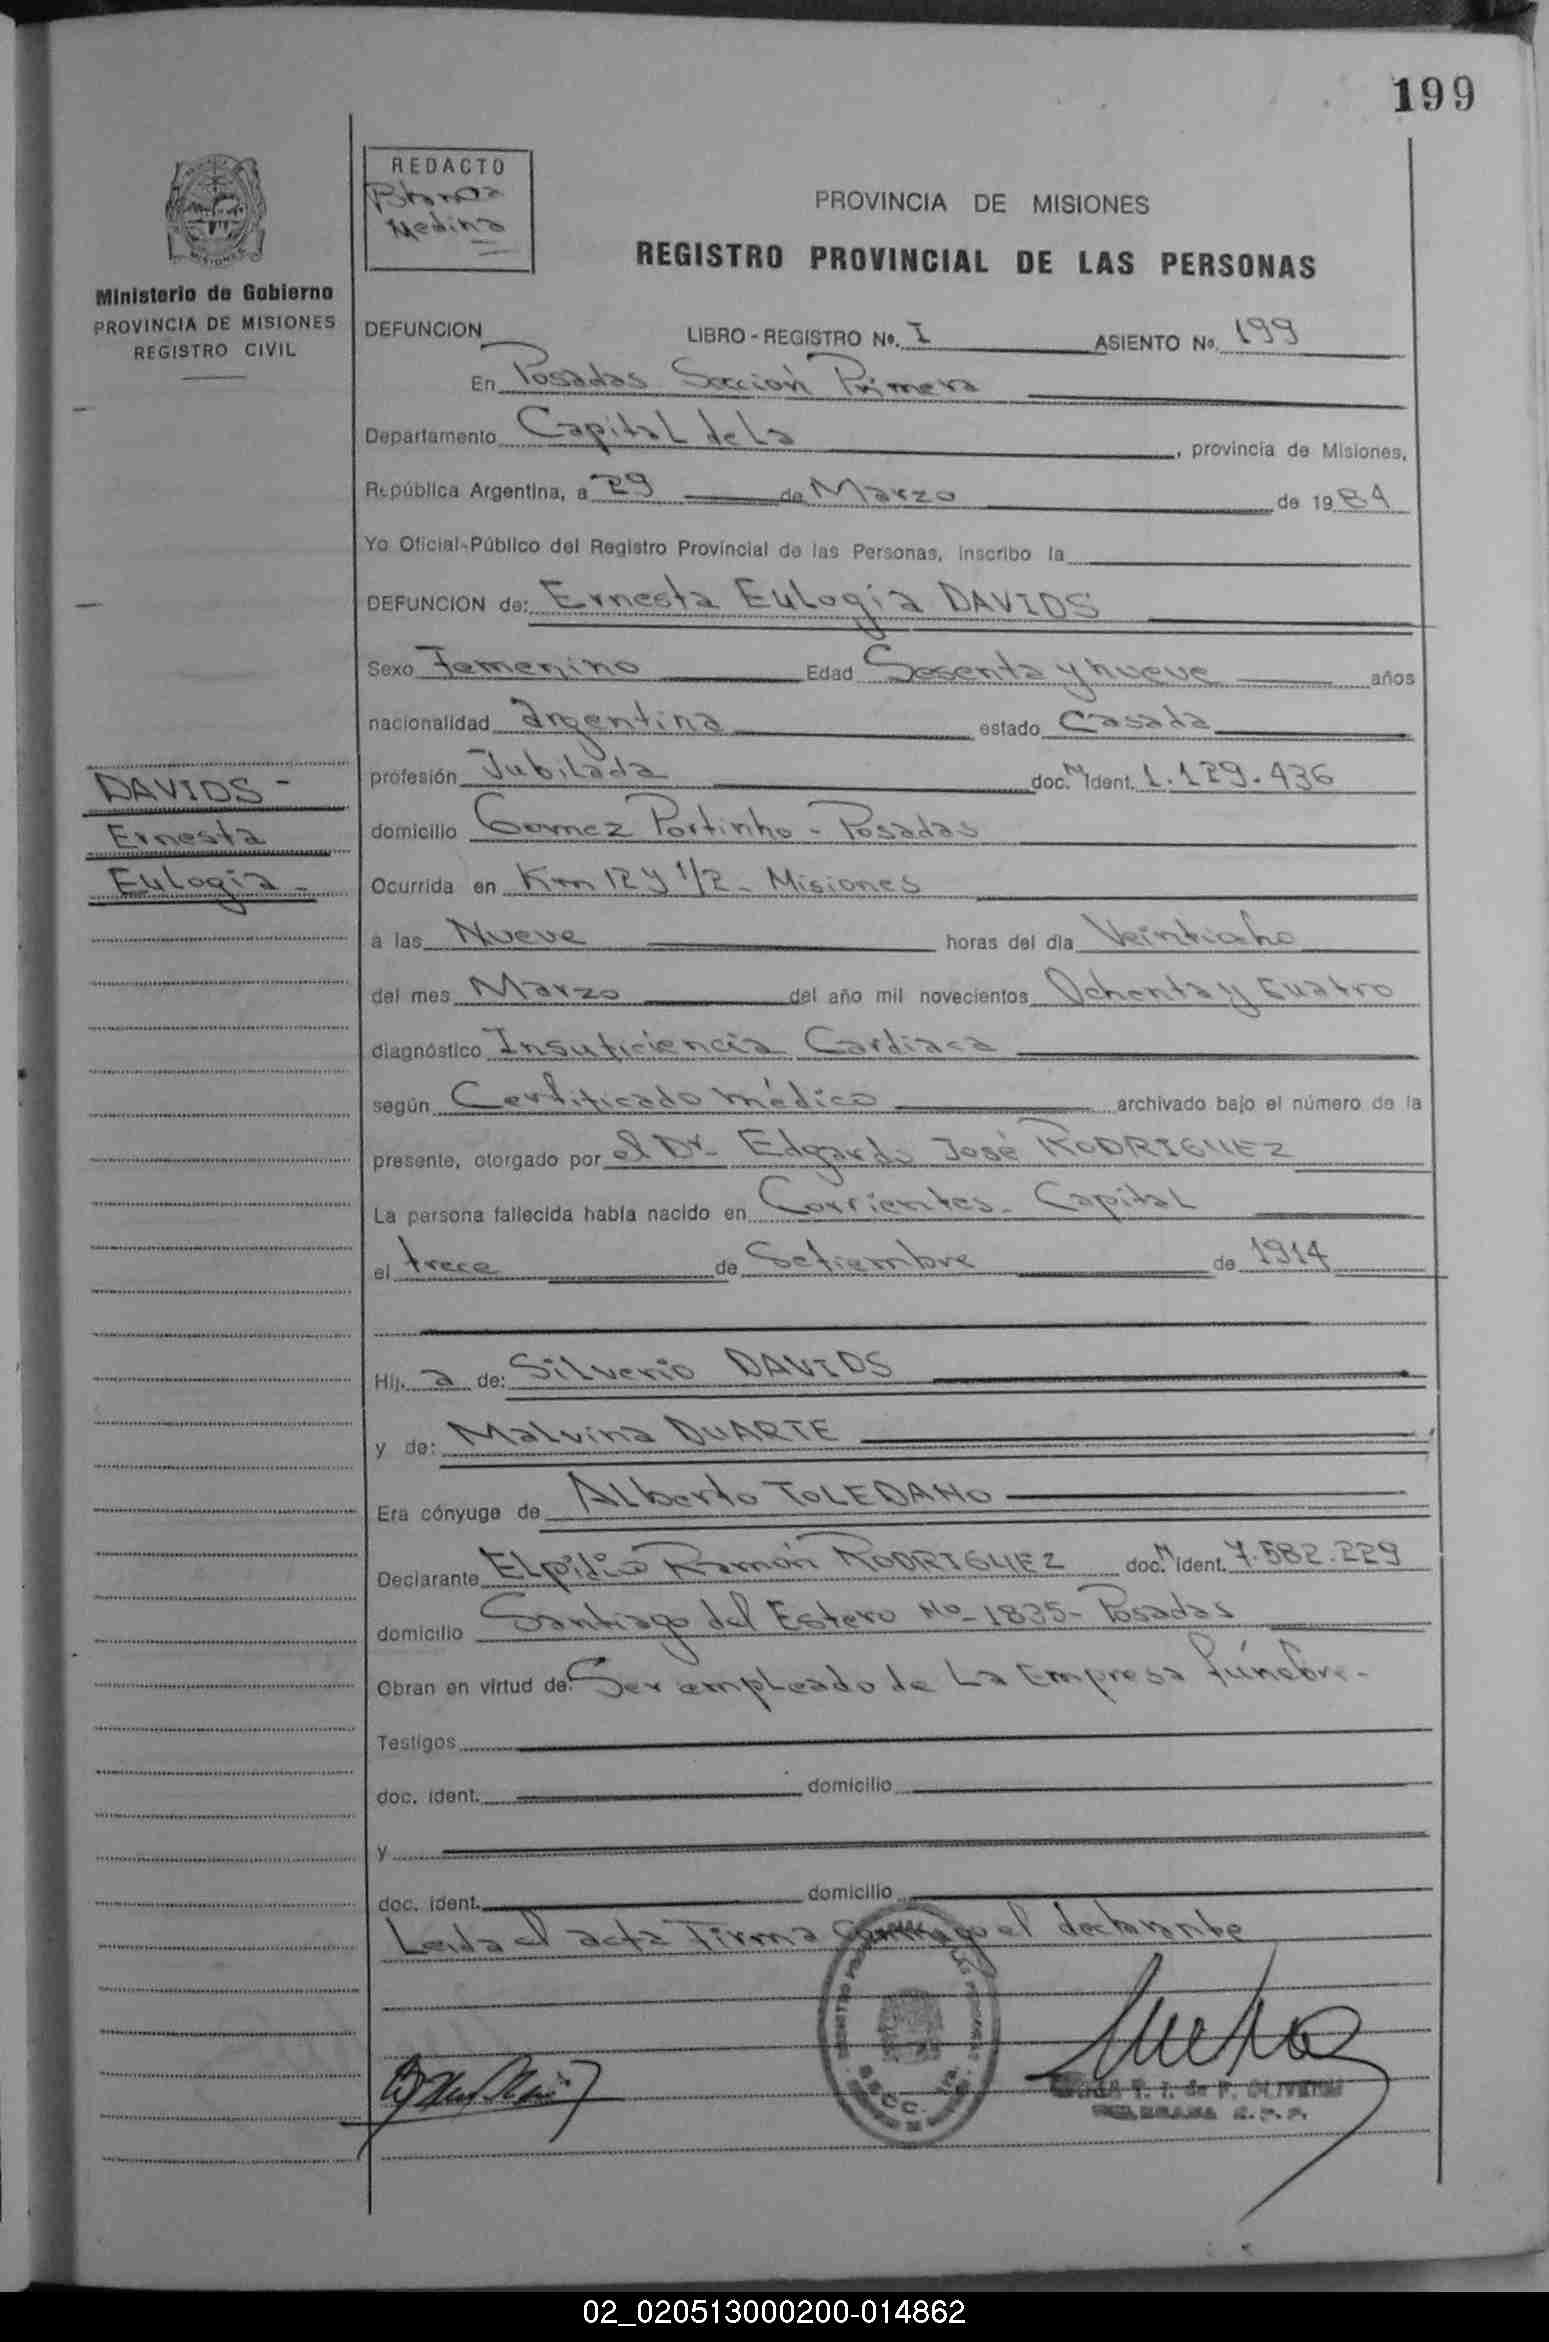 199
MISIONES
Ministerio de Gobierno
PROVINCIA DE MISIONES
REGISTRO CIVIL
DAVIDS -
Ernesta
Eulogia -
REDACTO
Blanca
Medina
PROVINCIA DE MISIONES
REGISTRO PROVINCIAL DE LAS PERSONAS
DEFUNCION LIBRO - REGISTRO No. I ASIENTO No. 199
En Posadas Sección Primera
Departamento Capital de La , provincia de Misiones,
República Argentina, a 29 de Marzo de 1984
Yo Oficial-Público del Registro Provincial de las Personas, inscribo la
DEFUNCION de: Ernesta Eulogia DAVIDS
Sexo Femenino Edad Sesenta y nueve años
nacionalidad argentina estado Casada
profesión Jubilada doc. N ident. 1.129.436
domicilio Gomez Portinho - Posadas
Ocurrida en Km 12 y 1/2 - Misiones
a las Nueve horas del día Veintiocho
del mes Marzo del año mil novecientos Ochenta y Cuatro
diagnóstico Insuficiencia Cardiaca
según Certificado médico archivado bajo el número de la
presente, otorgado por el Dr. Edgardo José RODRIGUEZ
La persona fallecida había nacido en Corrientes - Capital
el trece de Setiembre de 1914
Hij. a de: Silverio DAVIDS
y de: Malvina DUARTE
Era cónyuge de Alberto TOLEDANO
Declarante Elpidio Ramón RODRIGUEZ doc. N ident. 7.582.229
domicilio Santiago del Estero No - 1835 - Posadas
Obran en virtud de: Ser empleado de La Empresa fúnebre -
Testigos
doc. ident. domicilio
y
doc. ident. domicilio
Leida el acta Firma conmigo el declarante
02_020513000200-014862